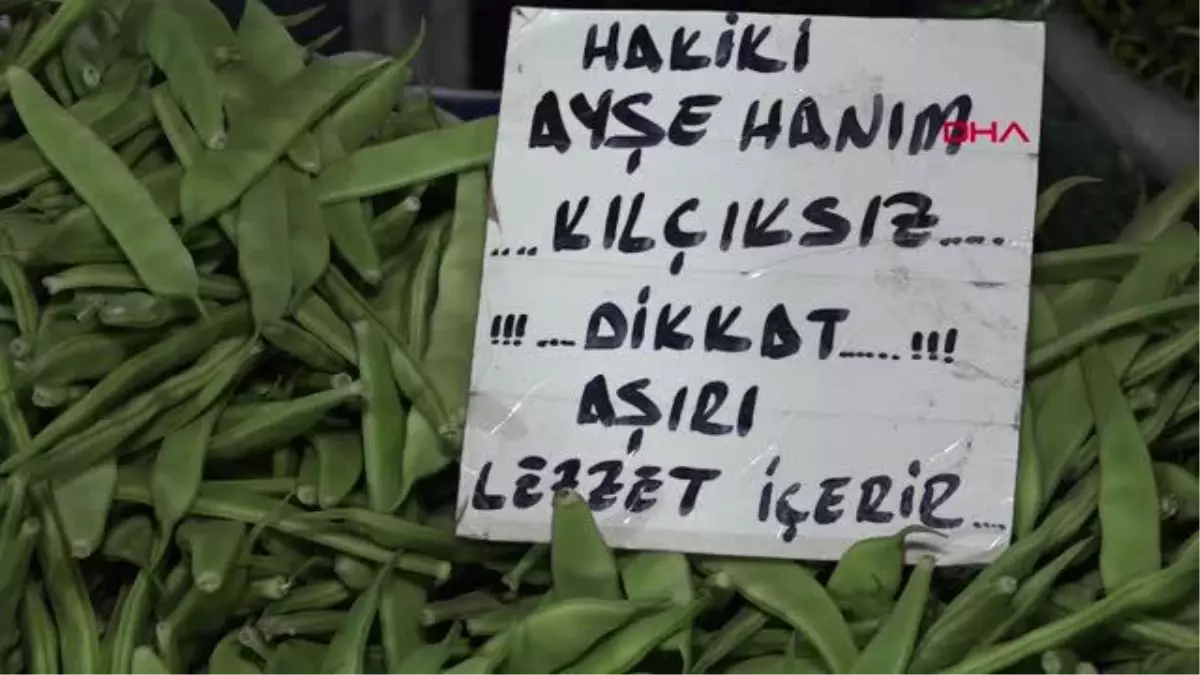 HAKİKİ
AYŞE HANIM
DHA
....KILÇIKSIZ....
!!!...DİKKAT.....!!!
AŞIRI
LEZZET İÇERİR...